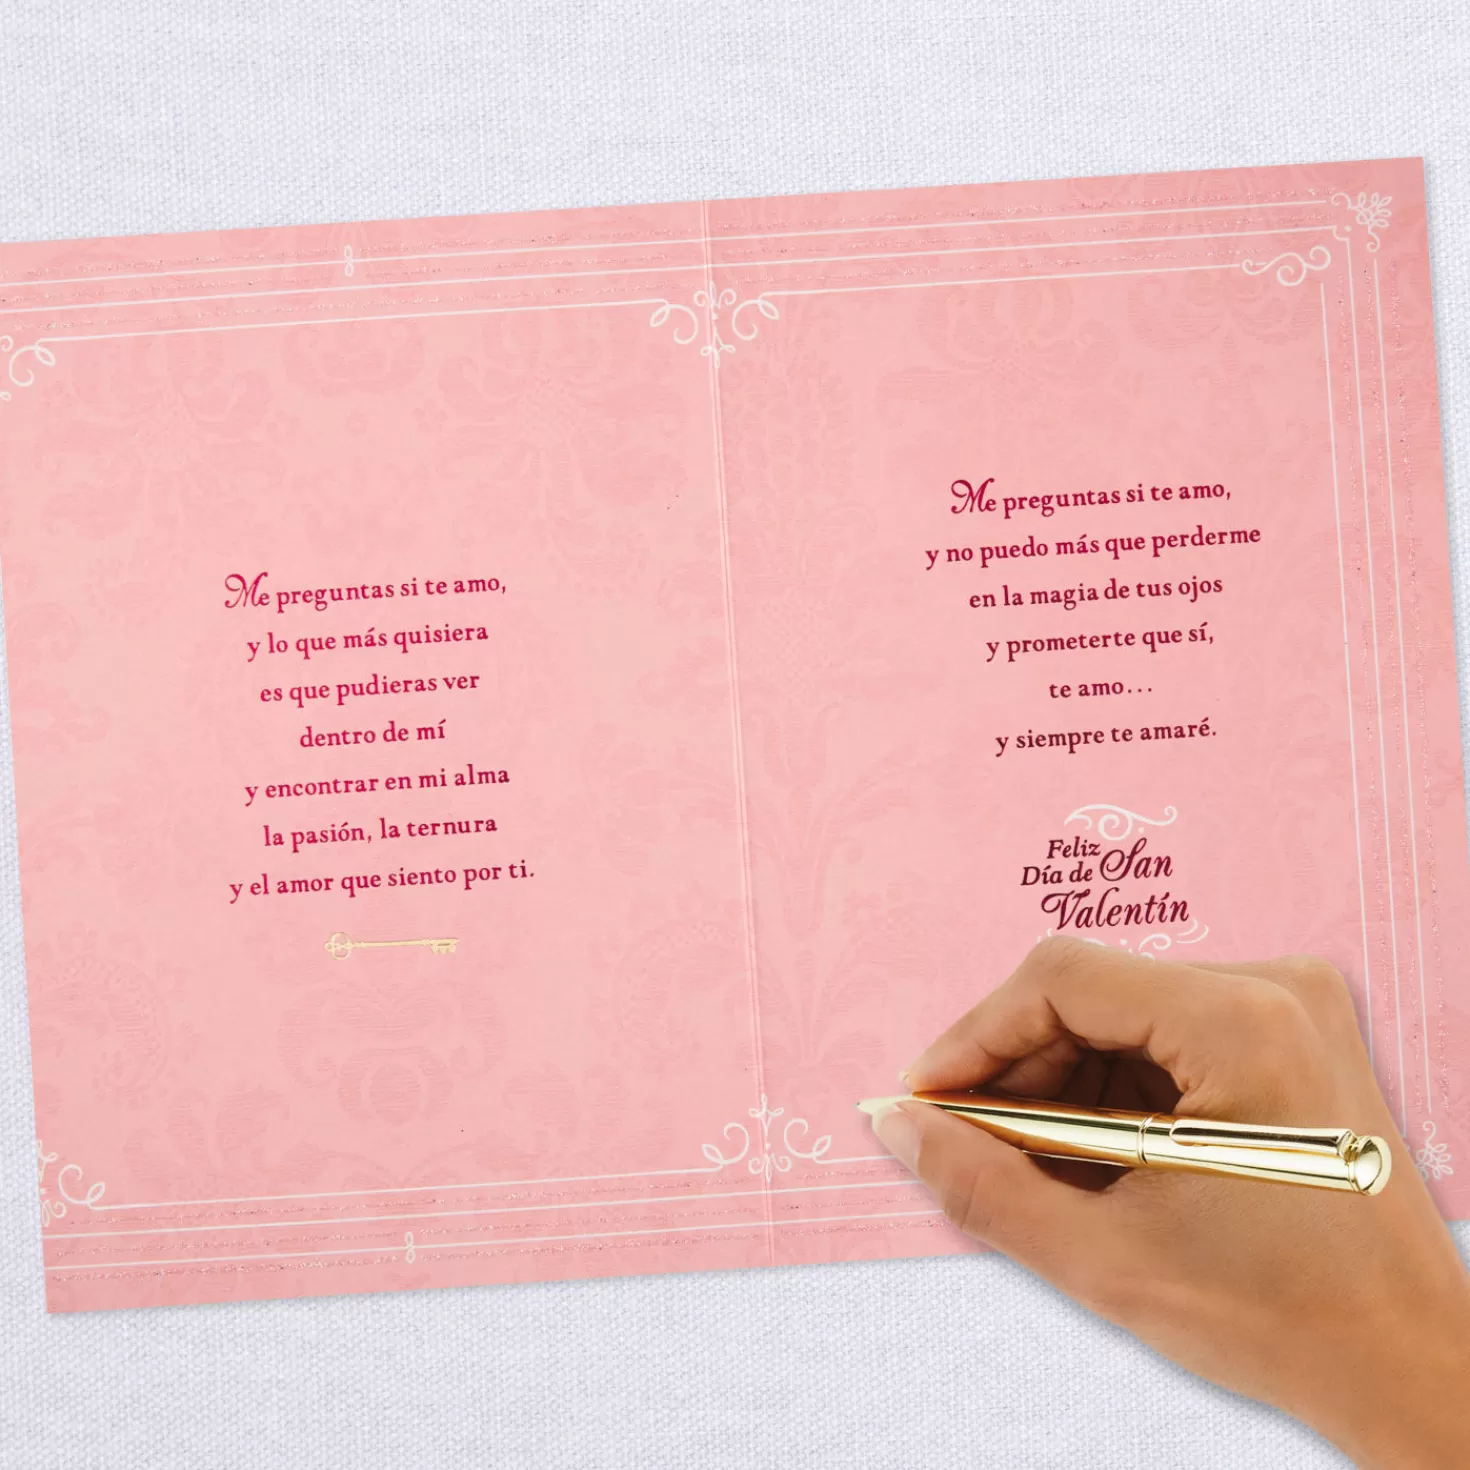 Me preguntas si te amo,
y lo que más quisiera
es que pudieras ver
dentro de mí
y encontrar en mi alma
la pasión, la ternura
y el amor que siento por ti.
Me preguntas si te amo,
y no puedo más que perderme
en la magia de tus ojos
y prometerte que sí,
te amo...
y siempre te amaré.
Feliz
Día de San
Valentín